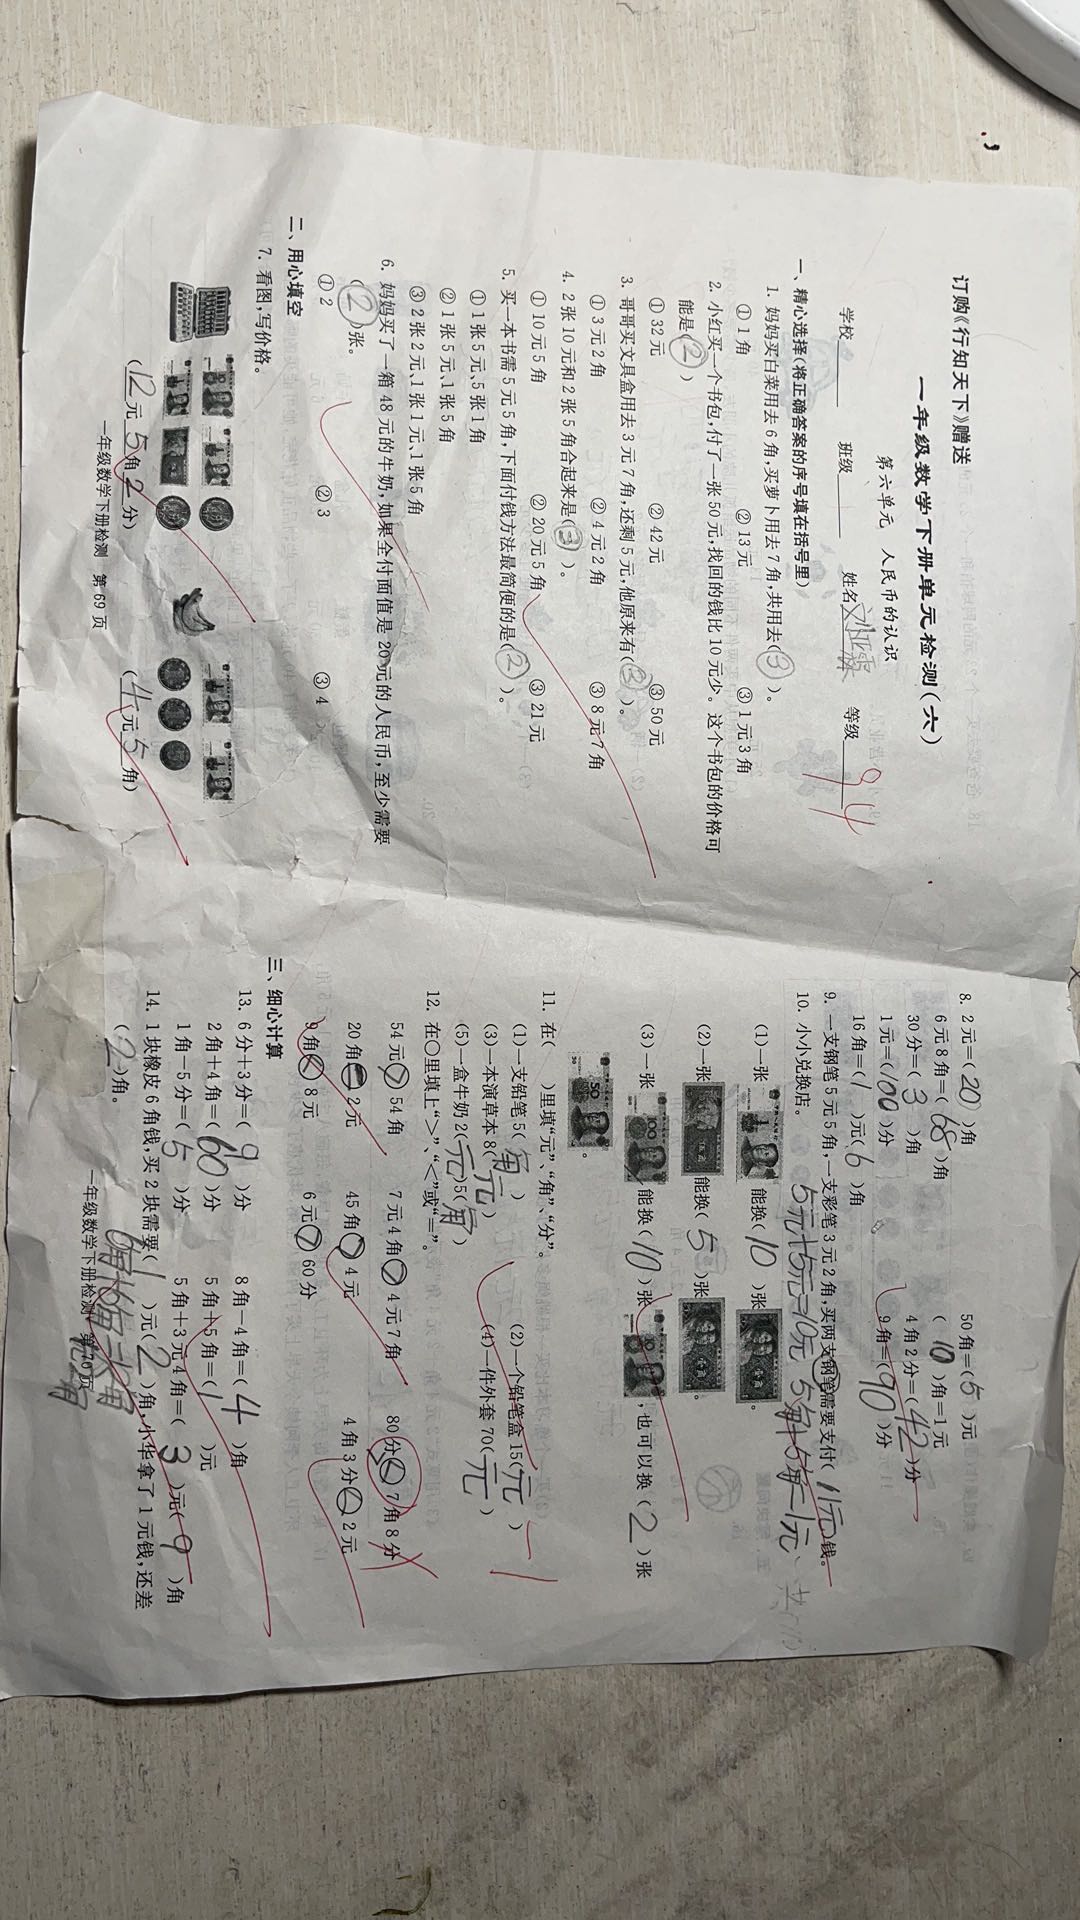 订购《行知天下》赠送
一年级数学下册单元检测(六)
第六单元 人民币的认识
学校 班级 姓名 等级 94
一、精心选择(将正确答案的序号填在括号里)
1. 妈妈买白菜用去6角,买萝卜用去7角,共用去(③)。
①1角 ②13元 ③1元3角
2. 小红买一个书包,付了一张50元,找回的钱比10元少。这个书包的价格可
能是(②)
①32元 ②42元 ③50元
3. 哥哥买文具盒用去3元7角,还剩5元,他原来有(③)。
①3元2角 ②4元2角 ③8元7角
4. 2张10元和2张5角合起来是(③)。
①10元5角 ②20元5角 ③21元
5. 买一本书需5元5角,下面付钱方法最简便的是(②)。
①1张5元、5张1角
②1张5元、1张5角
③2张2元、1张1元、1张5角
6. 妈妈买了一箱48元的牛奶,如果全付面值是20元的人民币,至少需要
(②)张。
①2 ②3 ③4
二、用心填空
7. 看图,写价格。
(12元5角2分) (4元5角)
一年级数学下册检测 第69页
8. 2元=(20)角 50角=(5)元
6元8角=(68)角 (10)角=1元
30分=(3)角 4角2分=(42)分
1元=(100)分 9角=(90)分
16角=(1)元(6)角
9. 一支钢笔5元5角,一支彩笔3元2角,买两支钢笔需要支付(11元)钱。
10. 小小兑换店。 5元+5元=10元 5角+5角=1元、
(1)一张 能换(10)张 。
(2)一张 能换(5)张 。
(3)一张 能换(10)张 ,也可以换(2)张
。
11. 在( )里填“元”、“角”、“分”。
(1)一支铅笔5(角) (2)一个铅笔盒15(元)
(3)一本演草本8(元) (4)一件外套70(元)
(5)一盒牛奶2(元)5(角)
12. 在○里填上“>”、“<”或“=”。
54元>54角 7元4角>4元7角 80分<7角8分
20角=2元 45角>4元 4角3分<2元
9角<8元 6元>60分
三、细心计算
13. 6分+3分=(9)分 8角-4角=(4)角
2角+4角=(60)分 5角+5角=(1)元
1角-5分=(5)分 5角+3元4角=(3)元(9)角
14. 1块橡皮6角钱,买2块需要(1)元(2)角,小华拿了1元钱,还差
(2)角。 6角+6角=12角
一年级数学下册检测 第70页